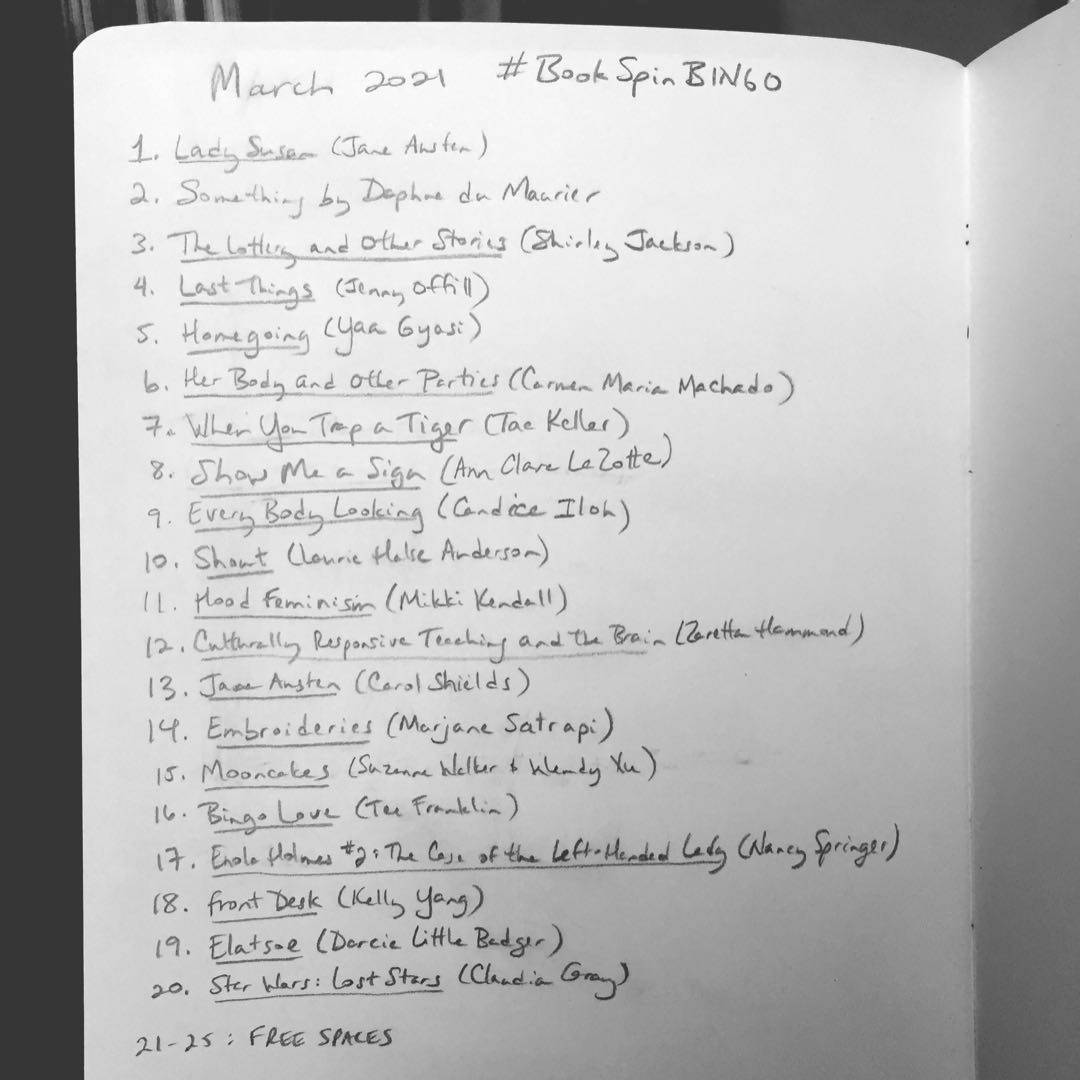 March 2021 #BookSpinBINGO
1. Lady Susan (Jane Austen)
2. Something by Daphne du Maurier
3. The Lottery and Other Stories (Shirley Jackson)
4. Last Things (Jenny Offill)
5. Homegoing (Yaa Gyasi)
6. Her Body and Other Parties (Carmen Maria Machado)
7. When You Trap a Tiger (Tae Keller)
8. Show Me a Sign (Ann Clare LeZotte)
9. Every Body Looking (Candice Iloh)
10. Shout (Laurie Halse Anderson)
11. Hood Feminism (Mikki Kendall)
12. Culturally Responsive Teaching and the Brain (Zaretta Hammond)
13. Jane Austen (Carol Shields)
14. Embroideries (Marjane Satrapi)
15. Mooncakes (Suzanne Walker & Wendy Xu)
16. Bingo Love (Tee Franklin)
17. Enola Holmes #2: The Case of the Left-Handed Lady (Nancy Springer)
18. Front Desk (Kelly Yang)
19. Elatsoe (Darcie Little Badger)
20. Star Wars: Lost Stars (Claudia Gray)
21-25: FREE SPACES